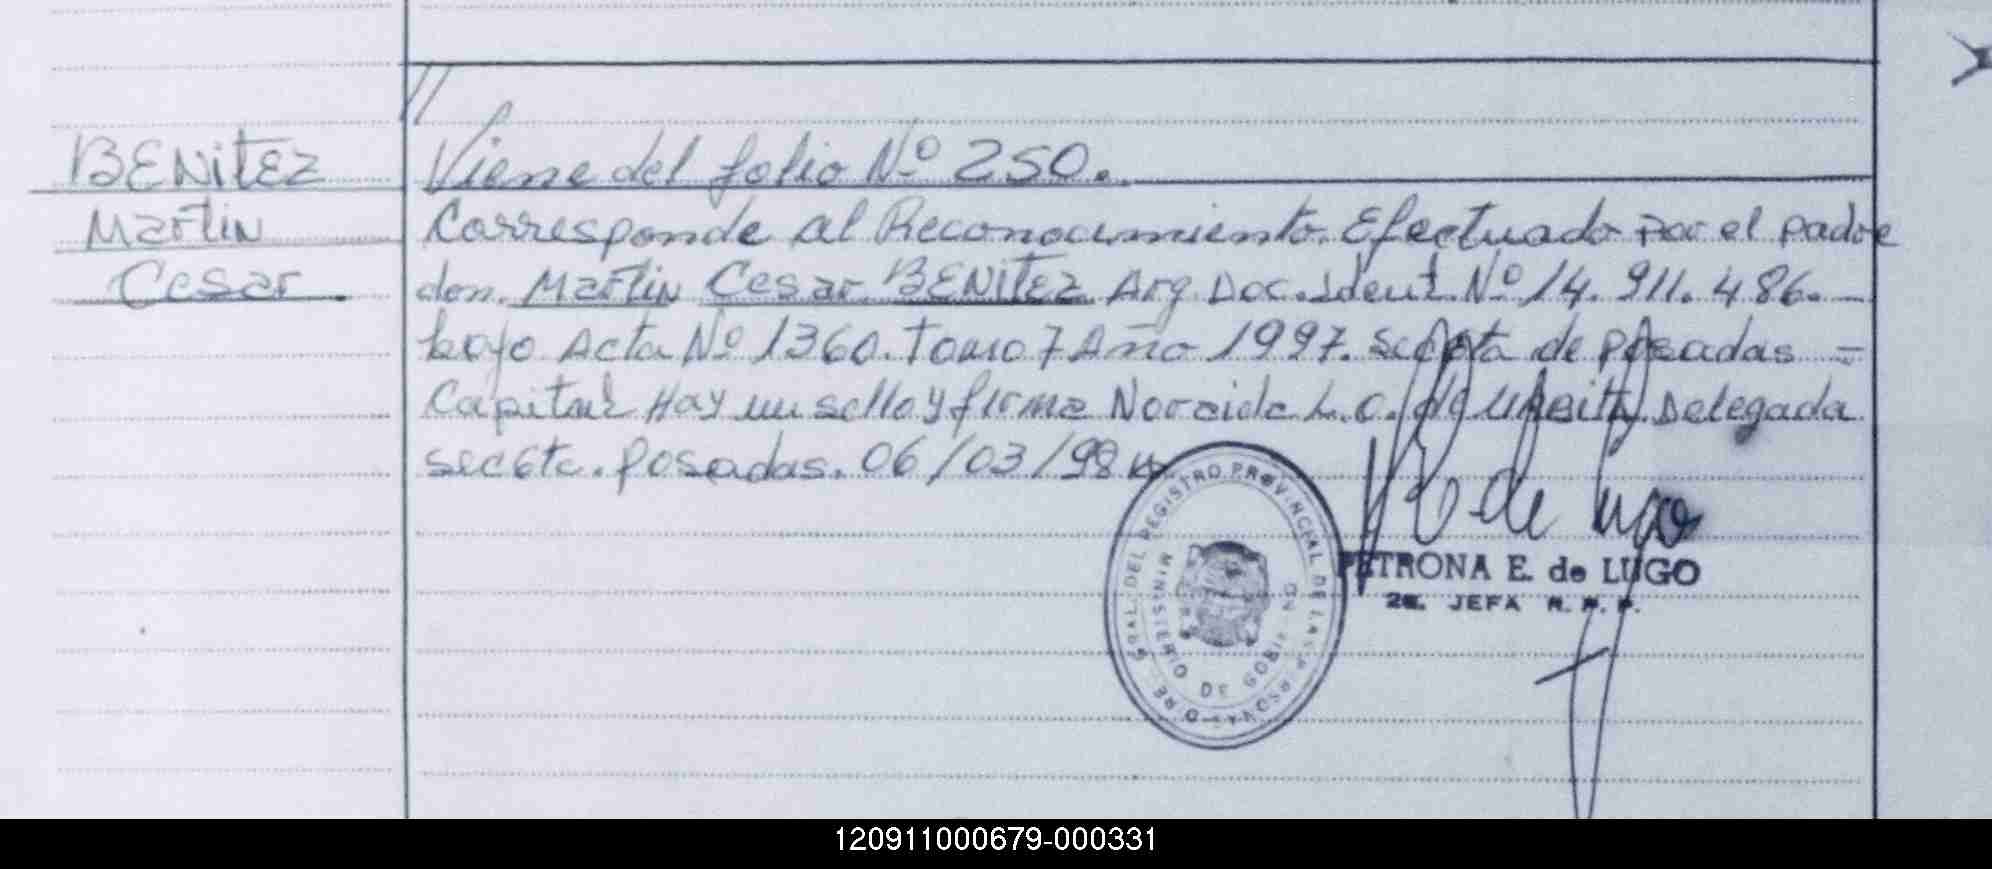 BENitEZ
Martin
Cesar
Viene del folio Nº 250.
Corresponde al Reconocimiento. Efectuado por el padre
don. Martin Cesar BENITEZ Arg. Doc. Ident. Nº 14.911.486. —
bajo Acta Nº 1360. Tomo 7 Año 1997. secc 6ta de Posadas —
Capital Hay un sello y firma Noraida L. C. de Delegada
secc 6ta. Posadas. 06/03/98
de Lugo
DIRE GRAL. DEL REGISTRO PROVINCIAL DE LAS PERSONAS
MINISTERIO DE GOBIERNO
PETRONA E. de LUGO
2a. JEFA R. P. P.
120911000679-000331